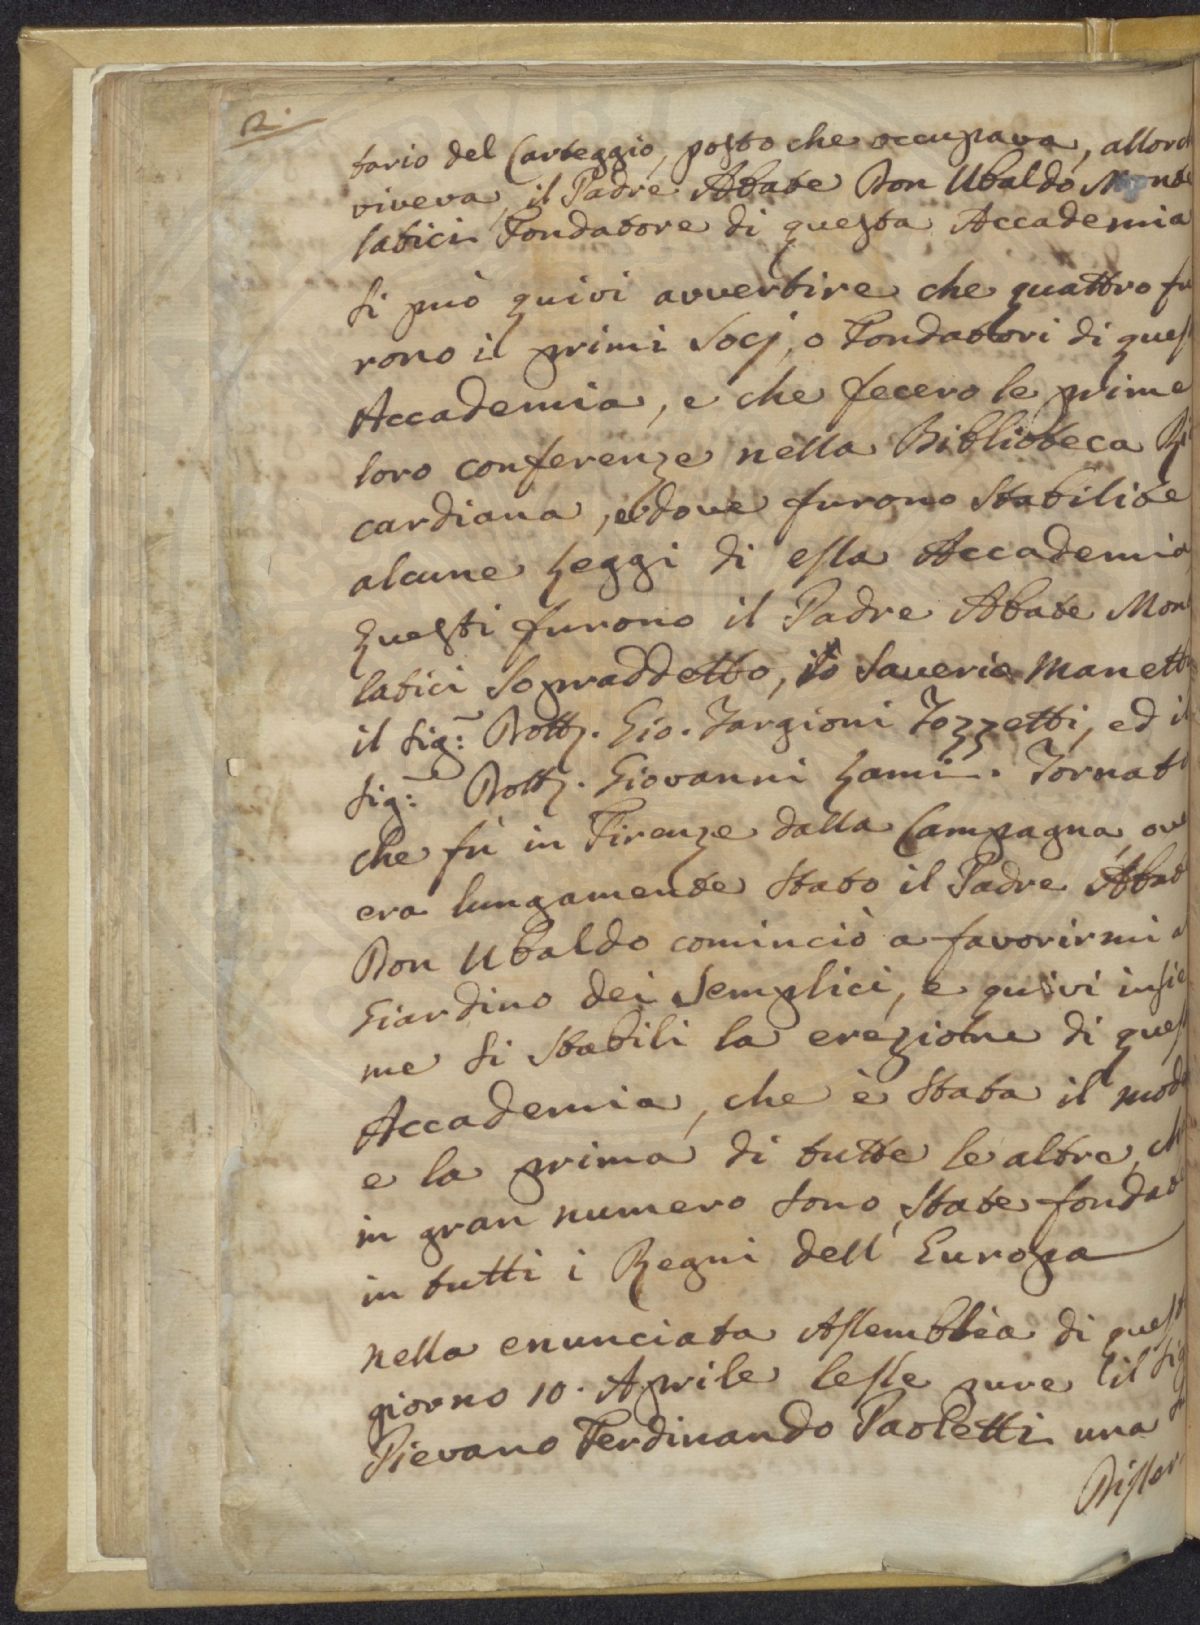 2.
tario del Carteggio, posto che occupava, allorch
viveva, il Padre Abate Don Ubaldo Monte
latici Fondatore di questa Accademia
Si può quivi avvertire che quattro fu
rono il primi Socj, o Fondatori di quest
Accademia, e che fecero le prime
loro conferenze nella Biblioteca Ri
cardiana, e dove furono Stabilite
alcune Leggi di essa Accademia
Questi furono il Padre Abate Mont
latici Sopraddetto, io Saverio Manetti
il Sig: Dott. Gio. Targioni Tozzetti, ed il
Sig: Dott. Giovanni Lami. Tornato
che fù in Firenze dalla Campagna ove
era lungamente Stato il Padre Abate
Don Ubaldo cominciò a favorirmi al
Giardino dei Semplici, e quivi insie
me Si Stabili la erezione di quest
Accademia, che è Stata il mode
e la prima di tutte le altre, ch
in gran numero Sono State fondate
in tutti i Regni dell' Europa
Nella enunciata Assemblèa di questo
giorno 10. Aprile lesse pure il Sig
Pievano Ferdinando Paoletti una
Disser